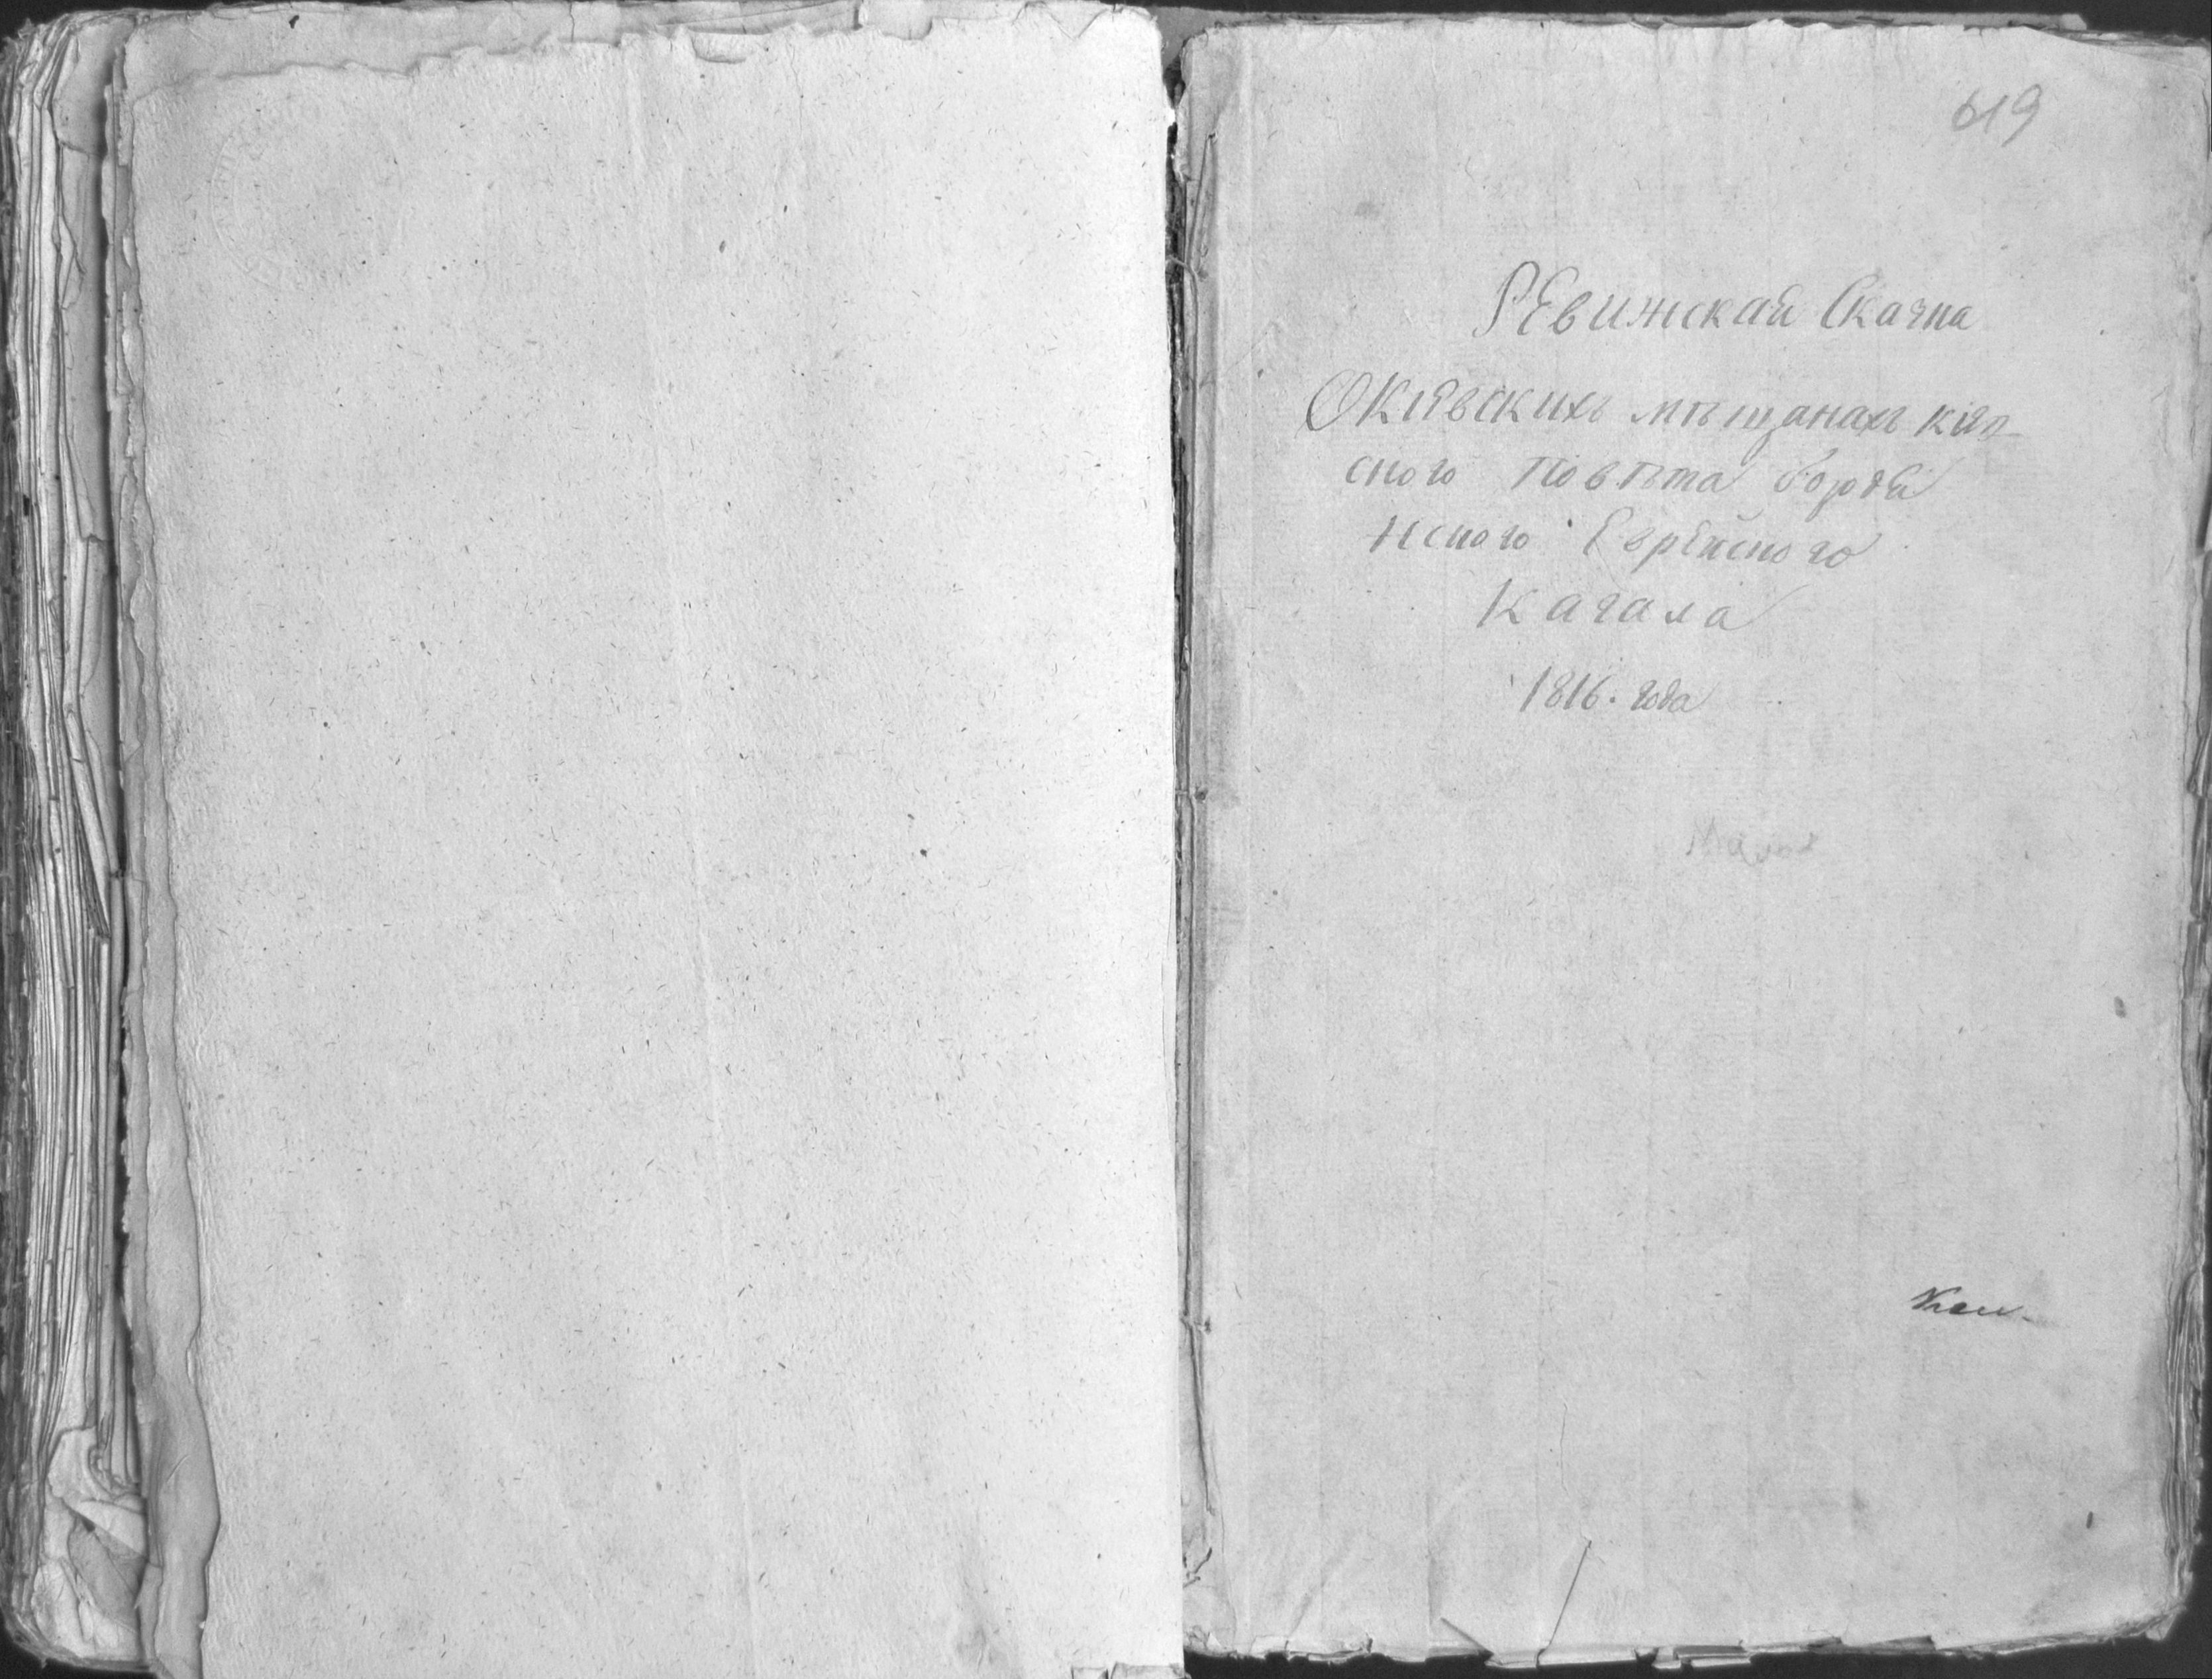 619
РЕвижская Сказка
О Кіевскихъ мѣщанахъ кіев-
ского повѣта бородя
нского Еврейского
Кагала
1816. года